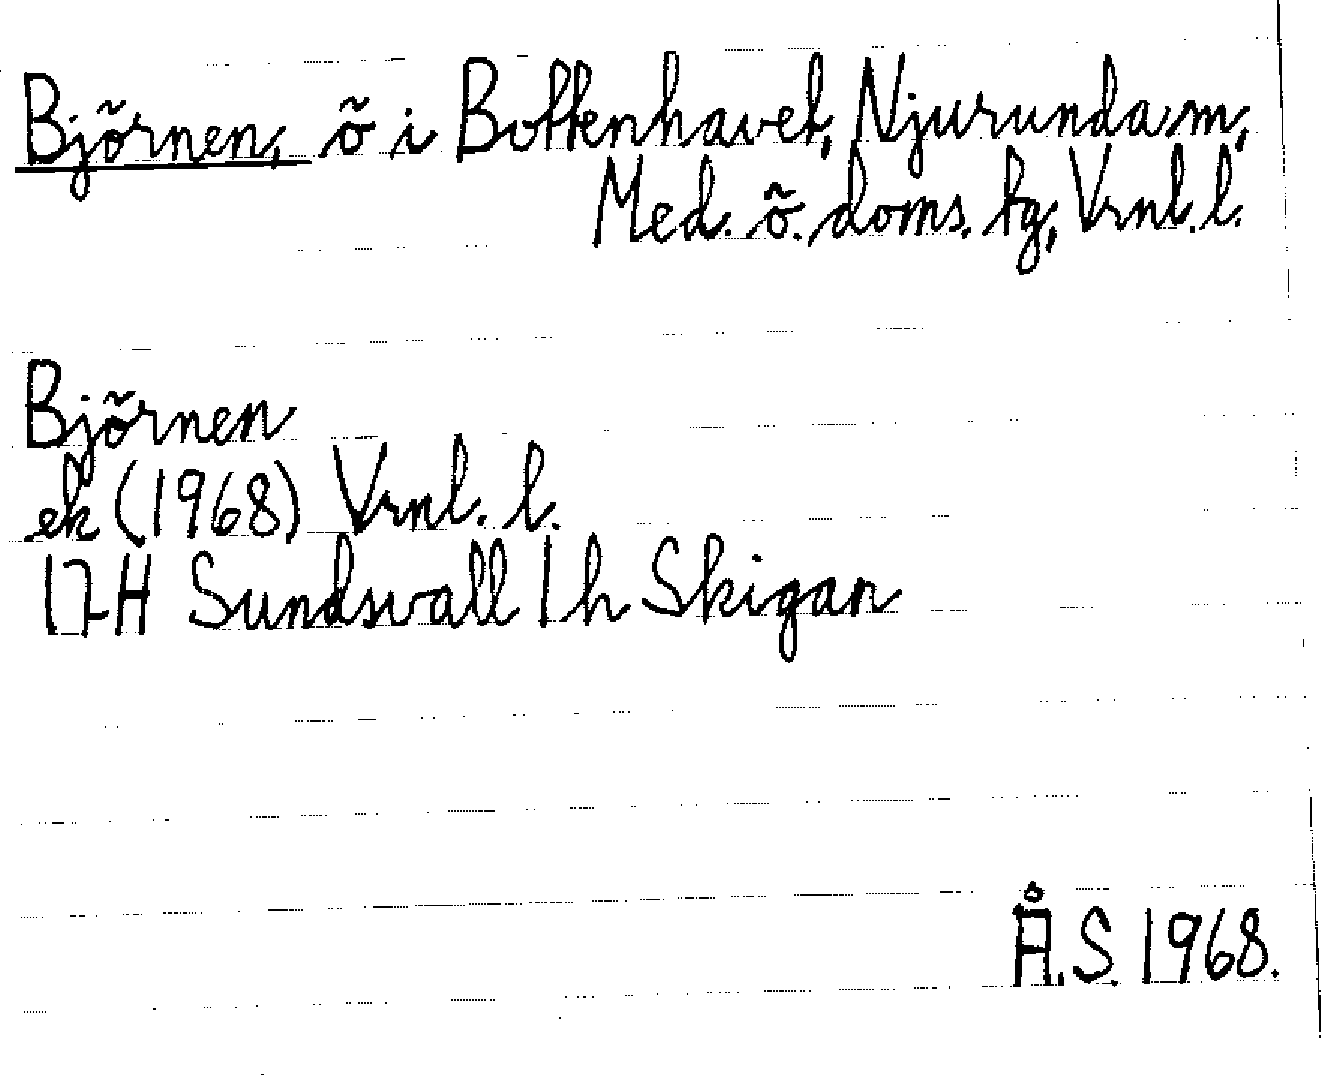 Björnen, ö i Bottenhavet, Njurunda sn,
Med. ö. doms. tg, Vrnl. l.
Björnen
ek (1968) Vrnl. l.
17H Sundsvall 1h Skigan
Å.S. 1968.